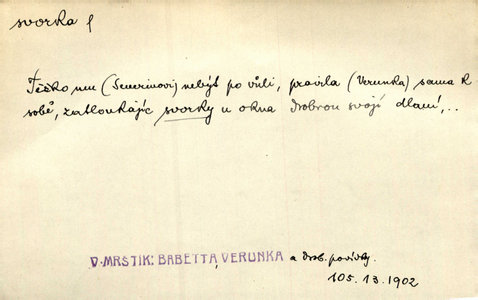 svorka f
Těžko mu (Severinovi) nebýt po vůli, pravila (Verunka) sama k
sobě, zatloukajíc svorky u okna drobnou svojí dlaní,..
V. MRSTIK: BABETTA, VERUNKA a drob. povídky.
105. 13. 1902